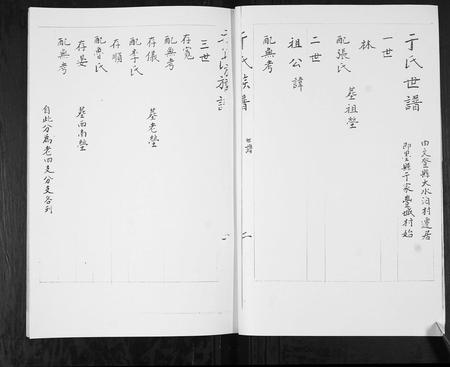 于氏世譜
由文登縣大水泊村遷居
即墨縣于家豐城村始
一世
林
配張氏
墓祖塋
二世
祖公諱
配無考
于氏族譜
世譜
二
三世
存寬
配無考
存儀
墓老塋
配李氏
存順
配曹氏
存晏
墓西南塋
配無考
自此分爲老四支分支各列